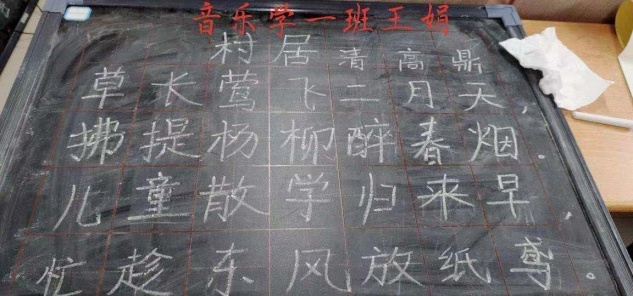 音乐学一班王娟
村居 清 高鼎
草长莺飞二月天,
拂提杨柳醉春烟.
儿童散学归来早,
忙趁东风放纸鸢。